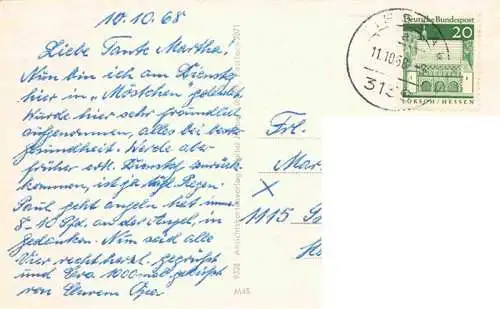 10.10.68
Liebe Tante Martha!
Nun bin ich am Dienstag
hier in "Möstchen" gelandet.
Wurde hier sehr freundlich
aufgenommen, alles bei bester
Gesundheit. Werde aber
früher erst. Dienstag zurück-
kommen, ist ja tägl. Regen.
Paul geht angeln hat immer
8-10 Pfd. an der Angel, in
Gedanken. Nun seid alle
Vier recht herzl. gegrüßt
und Vera 1000 mal geküßt
von Eurem Opa
Deutsche Bundespost
20
LORSCH/HESSEN
11.10.68
313
Frl.
Mar
1115
9328 Ansichtskartenverlag
M45